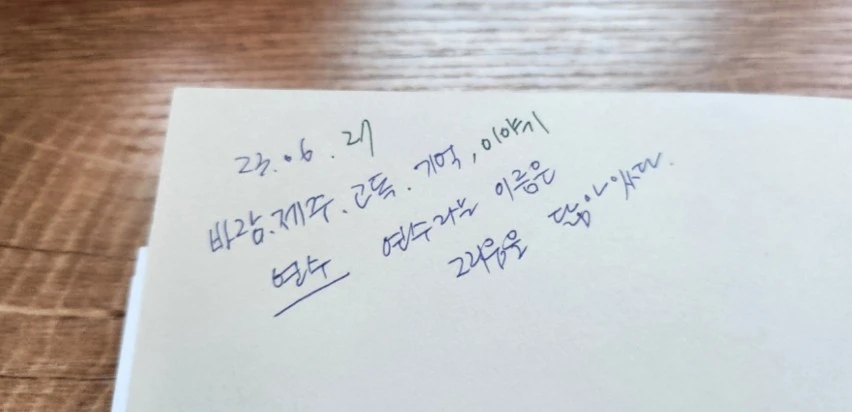 23.06.27
바람.제주.고독.기억,이야기
연수 연수라는 이름은
그리움을 닮아 있다.